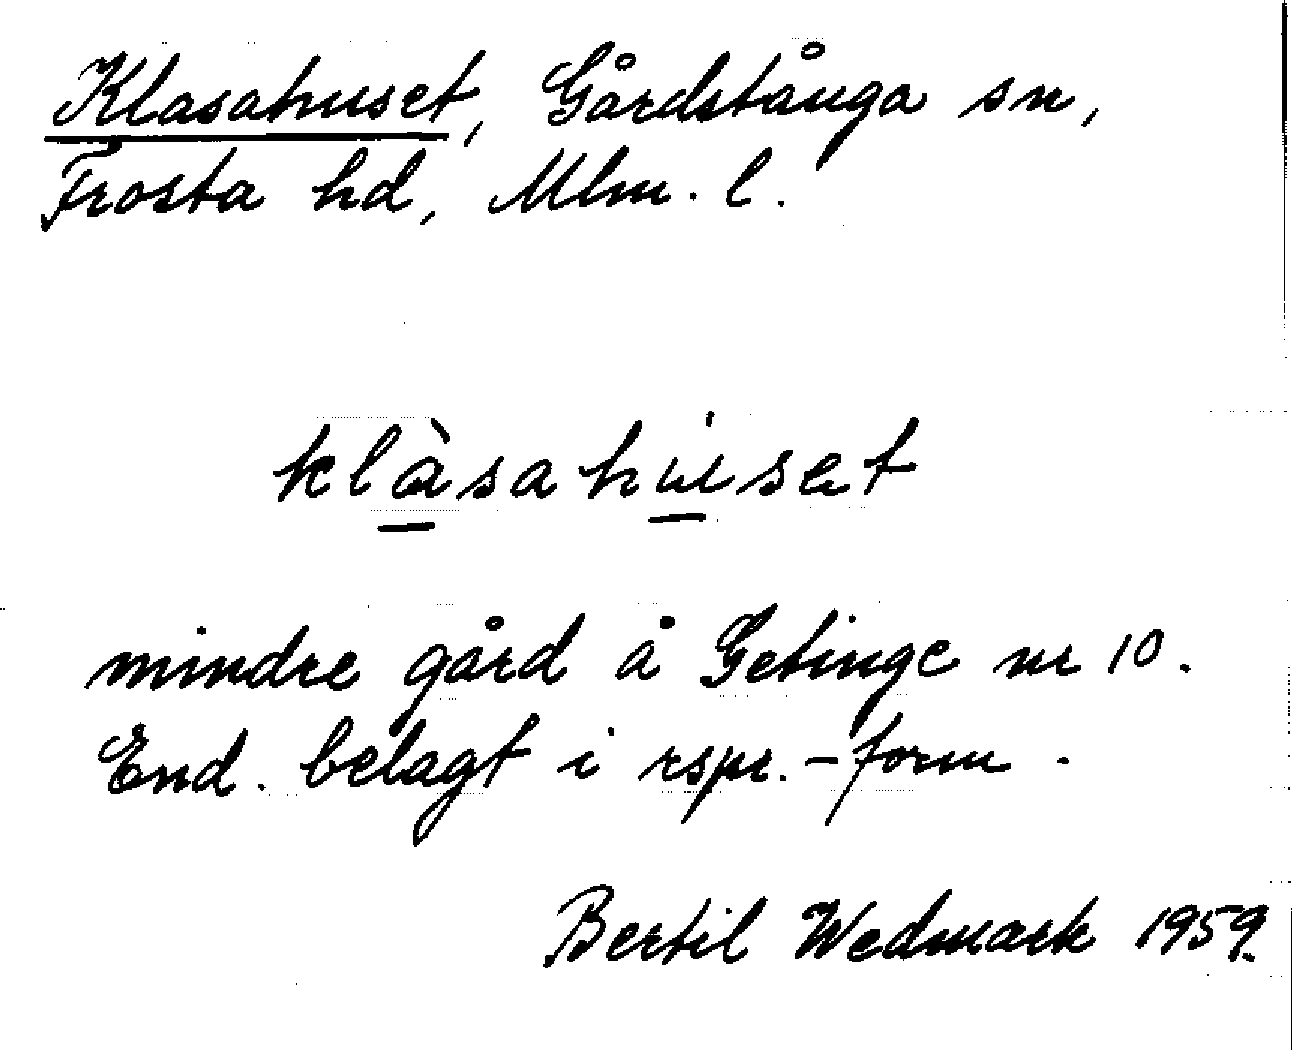 Klasahuset, Gårdstånga sn,
Frosta hd, Mlm. l.
klàsahúset
mindre gård å Getinge nr 10.
End. belagt i rspr.-form.
Bertil Wedmark 1959.